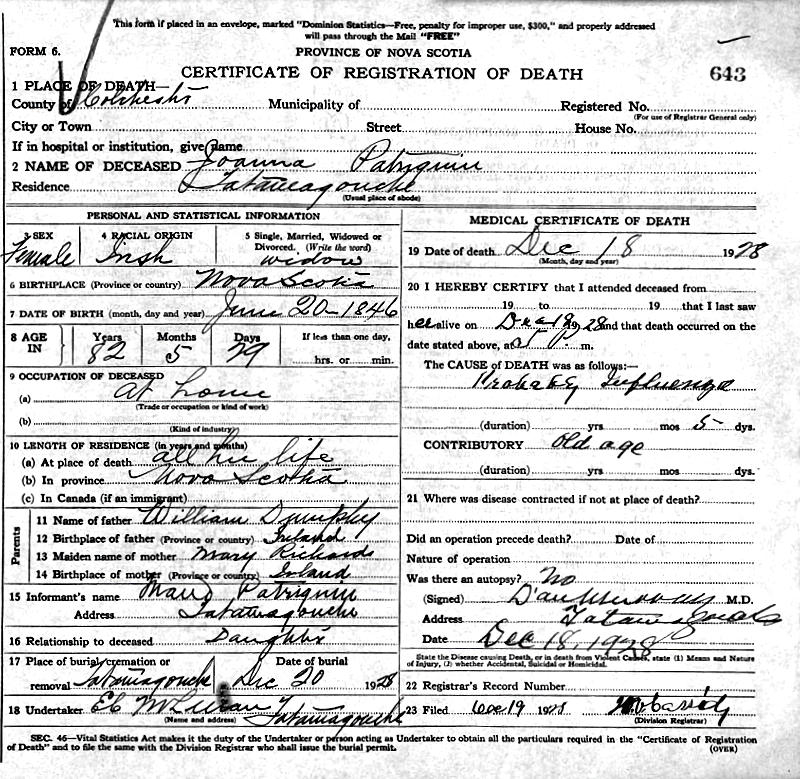 This form if placed in an envelope, marked "Dominion Statistics—Free, penalty for improper use, $300," and properly addressed
will pass through the Mail "FREE"
FORM 6.
PROVINCE OF NOVA SCOTIA
CERTIFICATE OF REGISTRATION OF DEATH
643
1 PLACE OF DEATH—
County of Colchester Municipality of Registered No.
(For use of Registrar General only)
City or Town Street House No.
If in hospital or institution, give name
2 NAME OF DECEASED Joanna Patriquin
Residence Tatamagouche
(Usual place of abode)
PERSONAL AND STATISTICAL INFORMATION
3 SEX 4 RACIAL ORIGIN 5 Single, Married, Widowed or
Divorced. (Write the word)
Female Irish widow
6 BIRTHPLACE (Province or country) Nova Scotia
7 DATE OF BIRTH (month, day and year) June 20-1846
8 AGE IN Years Months Days If less than one day,
82 5 29 hrs. or min.
9 OCCUPATION OF DECEASED
(a) at home
(Trade or occupation or kind of work)
(b)
(Kind of industry)
10 LENGTH OF RESIDENCE (in years and months)
(a) At place of death all her life
(b) In province Nova Scotia
(c) In Canada (if an immigrant)
Parents
11 Name of father William Dumphy
12 Birthplace of father (Province or country) Ireland
13 Maiden name of mother Mary Richards
14 Birthplace of mother (Province or country) Irland
15 Informant's name Maud Patriquin
Address Tatamagouche
16 Relationship to deceased Daughter
17 Place of burial, cremation or Date of burial
removal Tatamagouche Dec 20 1928
18 Undertaker Tatamagouche
(Name and address)
MEDICAL CERTIFICATE OF DEATH
19 Date of death Dec 18 1928
(Month, day and year)
20 I HEREBY CERTIFY that I attended deceased from
19 to 19 that I last saw
her alive on Dec 18 1928 and that death occurred on the
date stated above, at 5 P. m.
The CAUSE of DEATH was as follows:—
Probably Influenza
(duration) yrs mos 5 dys.
CONTRIBUTORY old age
(duration) yrs mos dys.
21 Where was disease contracted if not at place of death?
Did an operation precede death? Date of
Nature of operation
Was there an autopsy? No
(Signed) M.D.
Address
Date Dec 18, 1928
State the Disease causing Death, or in death from Violent Causes, state (1) Means and Nature
of Injury, (2) whether Accidental, Suicidal or Homicidal.
22 Registrar's Record Number
23 Filed Dec 19 1928
(Division Registrar)
SEC. 46—Vital Statistics Act makes it the duty of the Undertaker or person acting as Undertaker to obtain all the particulars required in the "Certificate of Registration
of Death" and to file the same with the Division Registrar who shall issue the burial permit. (OVER)